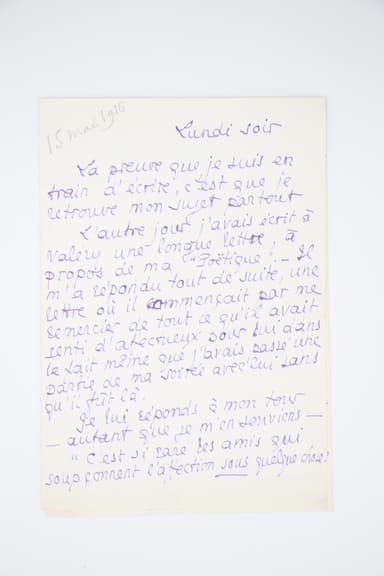 15 mai 1916
Lundi soir
La preuve que je suis en
train d'écrire, c'est que je
retrouve mon sujet partout
L'autre jour j'avais écrit à
Valéry une longue lettre, à
propos de ma "Poëtique". — Il
m'a répondu tout de suite, une
lettre où il commençait par me
remercier de tout ce qu'il avait
senti d'affectueux pour lui dans
le fait même que j'avais passé une
partie de ma soirée avec lui sans
qu'il fût là.
Je lui réponds à mon tour
— autant que je m'en souviens —
"C'est si rare les amis qui
soupçonnent l'affection sous quelque chose!